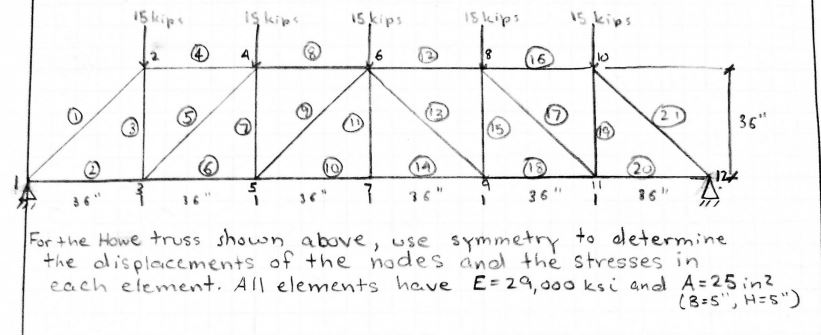 15 kips 15 kips 15 kips 15 kips 15 kips
2 ④ 4 ⑧ 6 ⑫ 8 ⑯ 10
① ③ ⑤ ⑦ ⑨ ⑪ ⑬ ⑮ ⑰ ⑲ ㉑ 36"
1 ② 3 ⑥ 5 ⑩ 7 ⑭ 9 ⑱ 11 ⑳ 12
36" 36" 36" 36" 36" 36"
For the Howe truss shown above, use symmetry to determine
the displacements of the nodes and the stresses in
each element. All elements have E=29,000 ksi and A=25 in2
(B=5", H=5")